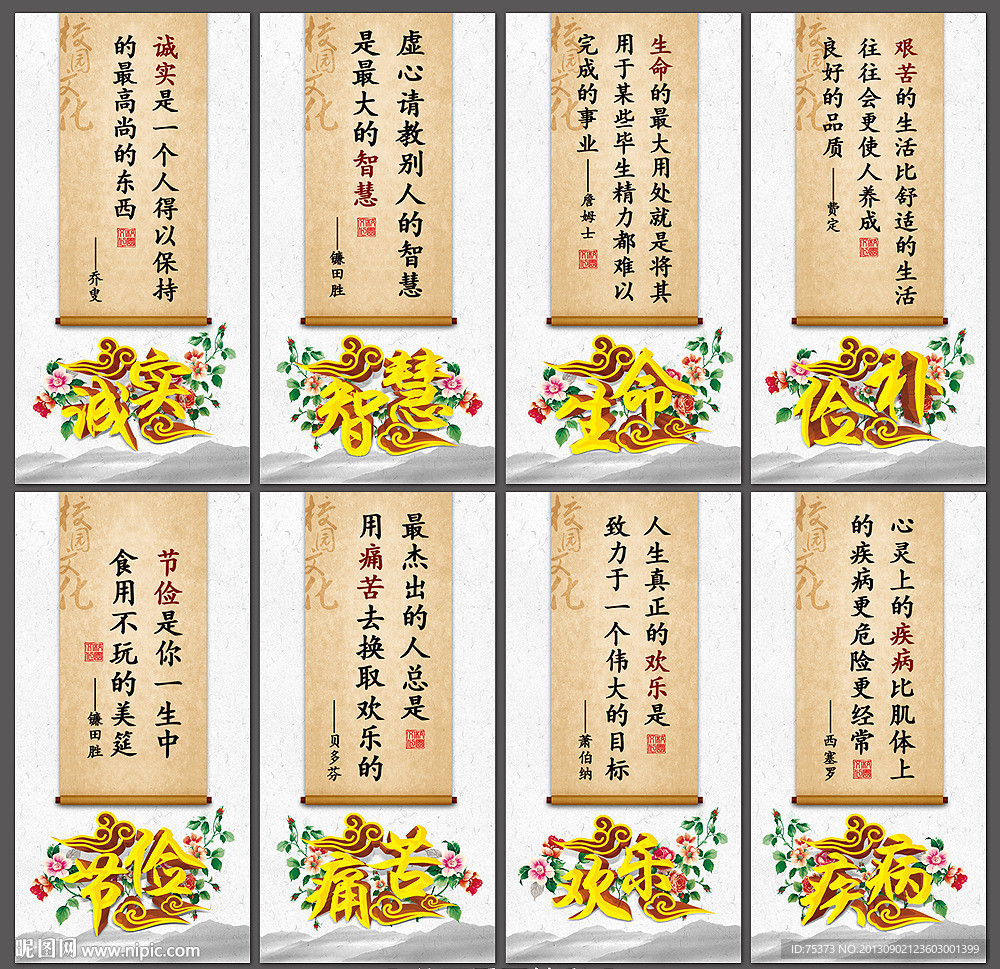 校园文化
诚实是一个人得以保持
的最高尚的东西
——乔叟
诚实
校园文化
虚心请教别人的智慧
是最大的智慧
——镰田胜
智慧
校园文化
生命的最大用处就是将其
用于某些毕生精力都难以
完成的事业——詹姆士
生命
校园文化
艰苦的生活比舒适的生活
往往会更使人养成
良好的品质——费定
俭朴
校园文化
节俭是你一生中
食用不玩的美筵
——镰田胜
节俭
校园文化
最杰出的人总是
用痛苦去换取欢乐的
——贝多芬
痛苦
校园文化
人生真正的欢乐是
致力于一个伟大的目标
——萧伯纳
欢乐
校园文化
心灵上的疾病比肌体上
的疾病更危险更经常
——西塞罗
疾病
昵图网 www.nipic.com
ID:75373 NO:20130902123603001399